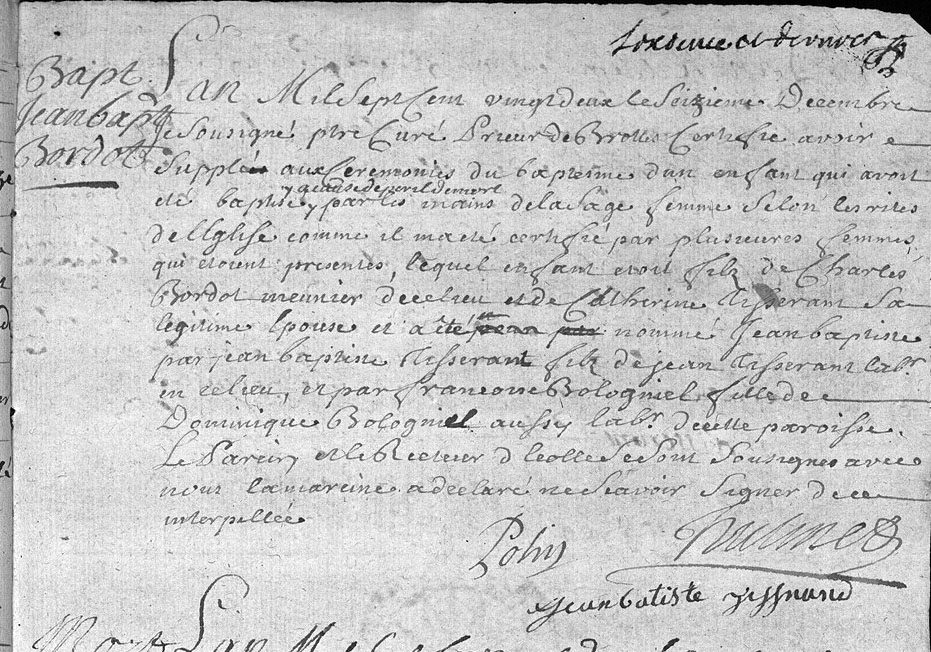 Bapt.
Jeanbapt
Bordot
L'an Mil Sept Cent vingt deux le Seizieme Decembre
Je Sousigné ptre Curé Prieur de Brottes Certifie avoir
Supplée aux Ceremonies du baptesme d'un enfant qui avoit
été baptisé y a cause de peril de mort par les mains de la Sage femme Selon les rites
de l'Eglise comme il m'a eté certifié par plusieures femmes
qui etoient presentes, lequel enfant etoit filz de Charles
Bordot meunier de ce lieu et de Catherine Tisserant Sa
legitime Epouse et a été nommé Jean baptiste
par jean baptiste Tisserant filz de jean Tisserant labr.
en ce lieu, et par francoise Bologniel fille de
Dominique Bologniel aussy labr. de cette paroisse.
Le Parein et le Recteur d'Ecolle se sont Sousignes avec
nous la mareine a declaré ne Scavoir Signer de ce
interpellée
Jean batiste